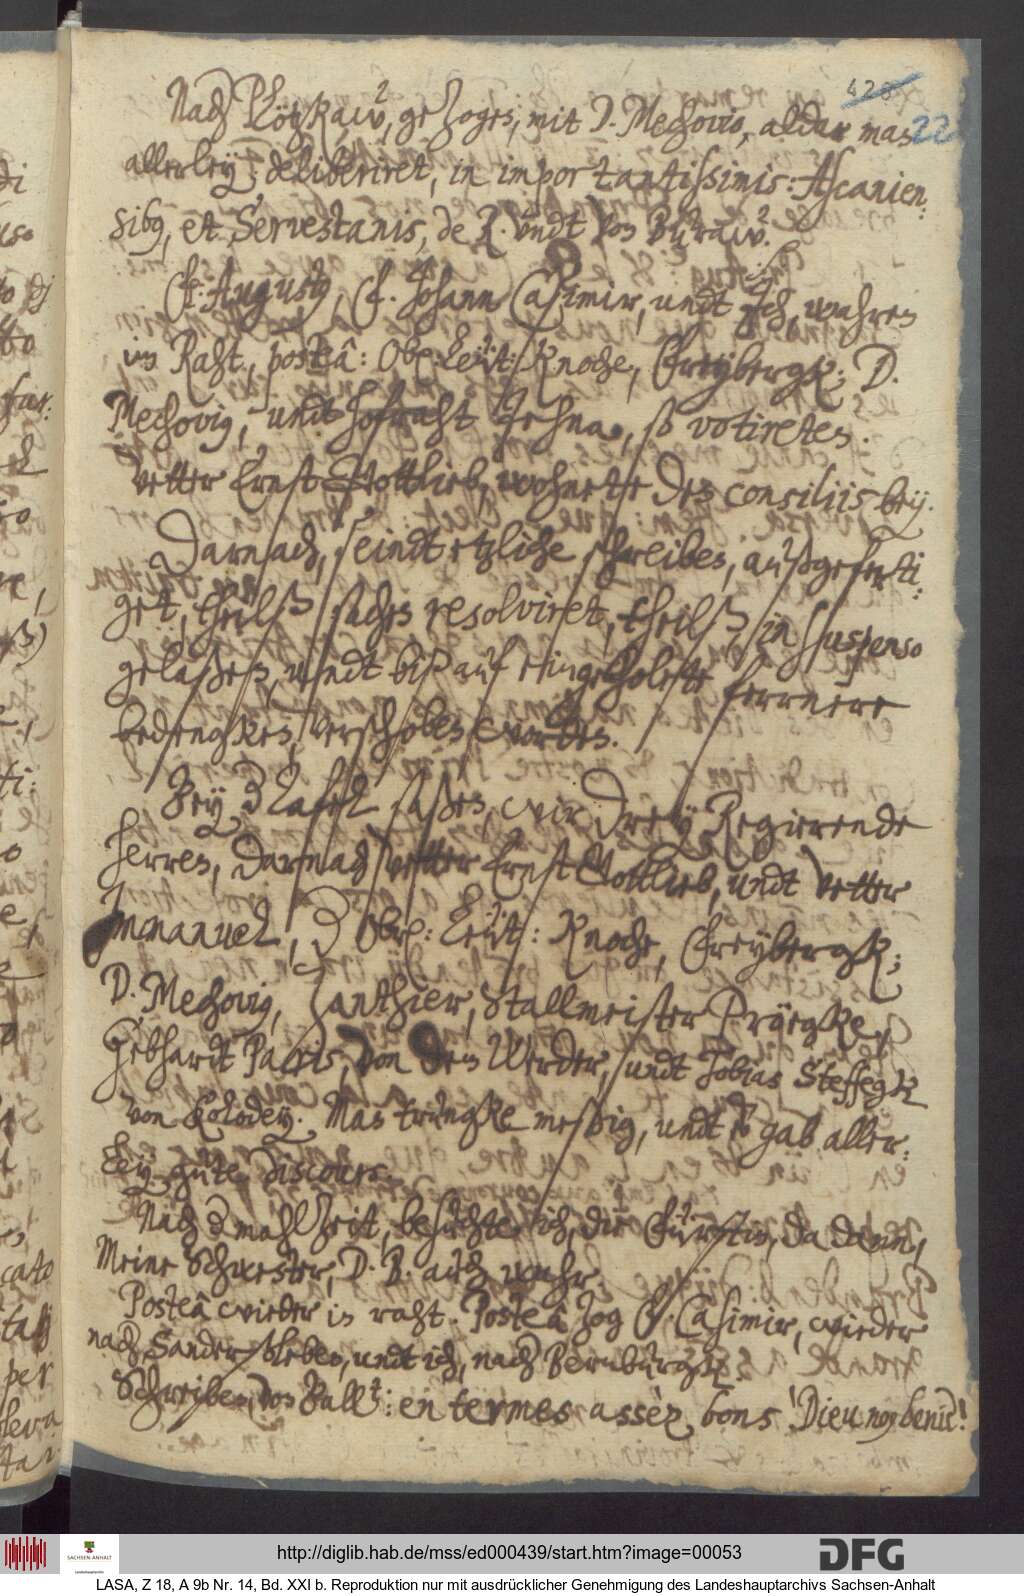 428
22
Nach Plötzkaw, gezogen, mit D. Mechovio, aldar man
allerley: deliberiret, in importantissimis: Ascanien¬
sibus, et Servestanis, de R. undt von Buraw.
F. Augusto, F. Johann Casimir, undt Ich, wahren
im Raht, posteà: Ob. Leüt: Knoche, Freybergk; D.
Mechovius, undt Hofraht Jehna, so votireten.
Vetter Ernst Gottlieb, wohnette den consiliis bey.
Darnach, seindt etzliche schreiben, außgeferti¬
get, theilß sachen resolviret, theilß, in suspenso
gelaßen, undt biß auf eingeholete fernere
bedengken, verschoben worden.
Bey d Tafel saßen, wir Drey Regierende
Herren, darnach Vetter Ernst Gottlieb, undt Vetter
Immanuel, d Ob: Leüt: Knoche, Freybergk;
D. Mechovius, Zanthier, Stallmeister Prÿegke,
Gebhardt Paris, von dem Werder, undt Tobias Steffegk
von Kolodey. Man trungke meßig, undt es gab aller¬
ley gute discours.
Nach d mahlzeit, besuchte ich, die Fürstin, da dann,
Meine Schwester, D. B. auch wahr.
Posteà wieder in raht. Posteà zog F. Casimir, wieder
nach Sanderßleben, undt ich, nach Bernburgk.
Schreiben von Ball: en termes assèz bons! Dieu nous benie!
http://diglib.hab.de/mss/ed000439/start.htm?image=00053
SACHSEN-ANHALT
Landeshauptarchiv
DFG
LASA, Z 18, A 9b Nr. 14, Bd. XXI b. Reproduktion nur mit ausdrücklicher Genehmigung des Landeshauptarchivs Sachsen-Anhalt